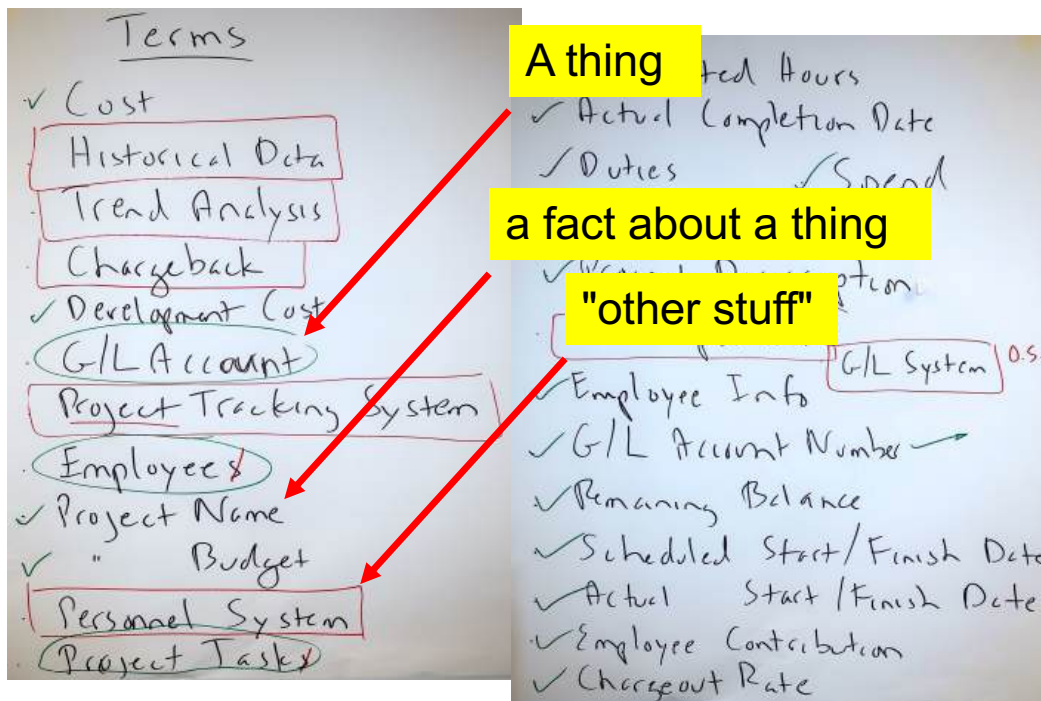 Terms
Cost
Historical Data
Trend Analysis
Chargeback
Development Cost
G/L Account
Project Tracking System
Employees
Project Name
" Budget
Personnel System
Project Tasks
A thing
Hours
Actual Completion Date
Duties
Spend
a fact about a thing
"other stuff"
G/L System
O.S.
Employee Info
G/L Account Number
Remaining Balance
Scheduled Start/Finish Date
Actual Start/Finish Date
Employee Contribution
Chargeout Rate